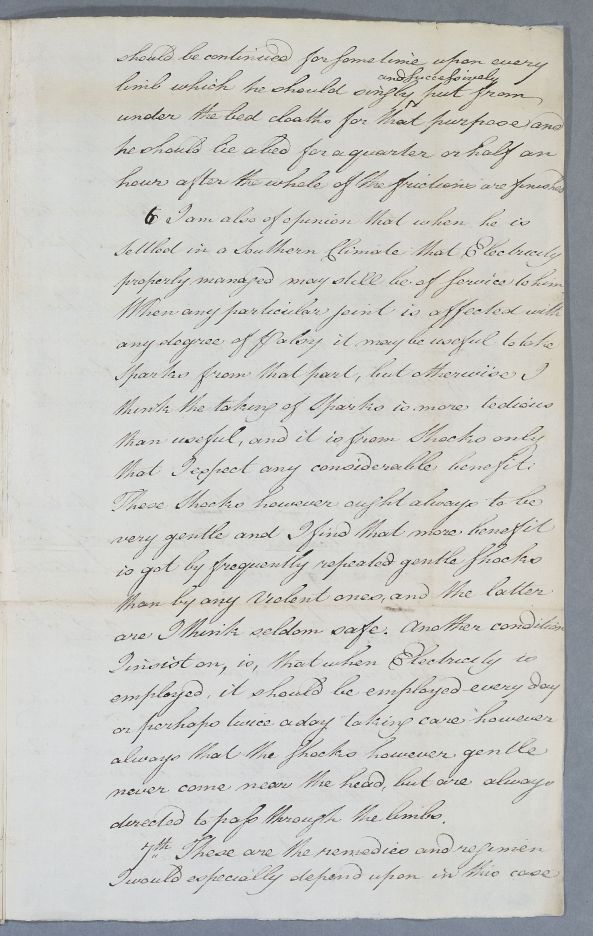 should be continued for some time upon every
and successively
limb which he should singly put from
under the bed cloaths for that purpose and
he should lie abed for a quarter or half an
hour after the whole of the frictions are finished
6 I am also of opinion that when he is
settled in a Southern Climate that Electricity
properly managed may still be of service to him
When any particular joint is affected with
any degree of Palsy it may be useful to take
Sparks from that part, but otherwise I
think the taking of Sparks is more tedious
than useful, and it is from Shocks only
that I expect any considerable benefit.
These Shocks however ought always to be
very gentle and I find that more benefit
is got by frequently repeated gentle Shocks
than by any violent ones, and the latter
are I think seldom safe. Another condition
I insist on, is, that when Electricity is
employed, it should be employed every day
or perhaps twice a day taking care however
always that the Shocks however gentle
never come near the head, but are always
directed to pass through the limbs.
7th These are the remedies and regimen
I would especially depend upon in this case